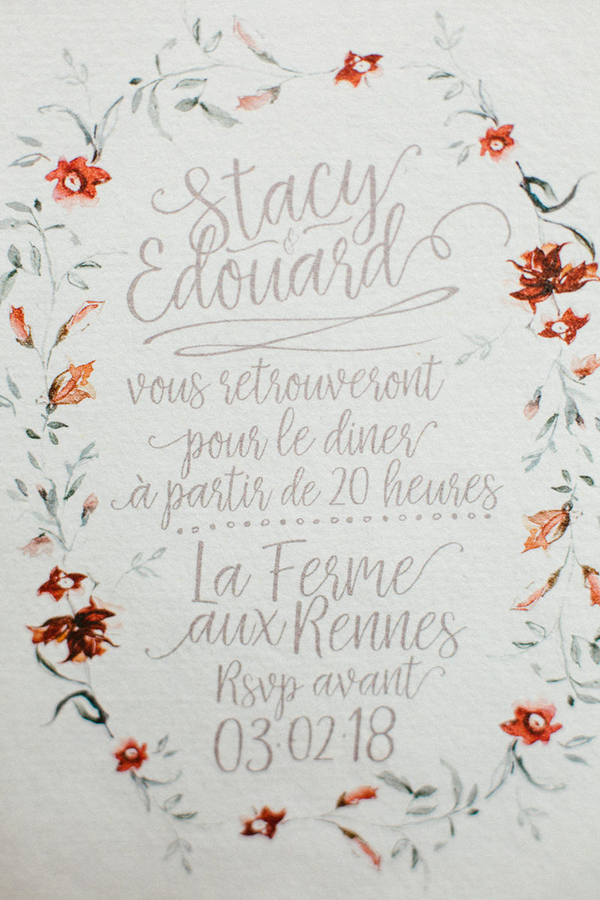 Stacy
&
Edouard
vous retrouveront
pour le diner
à partir de 20 heures
La Ferme
aux Rennes
Rsvp avant
03·02·18